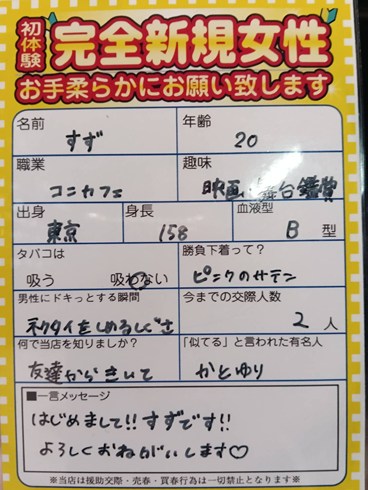 初体験
完全新規女性
お手柔らかにお願い致します
名前
すず
年齢
20
職業
コンカフェ
趣味
映画、舞台鑑賞
出身
東京
身長
158
血液型
B 型
タバコは
吸う 吸わない
勝負下着って?
ピンクのサテン
男性にドキっとする瞬間
ネクタイをしめるしぐさ
今までの交際人数
2 人
何で当店を知りましたか?
友達からきいて
「似てる」と言われた有名人
かとゆり
■一言メッセージ
はじめまして!!すずです!!
よろしくおねがいします♡
※当店は援助交際・売春・買春行為は一切禁止となります※